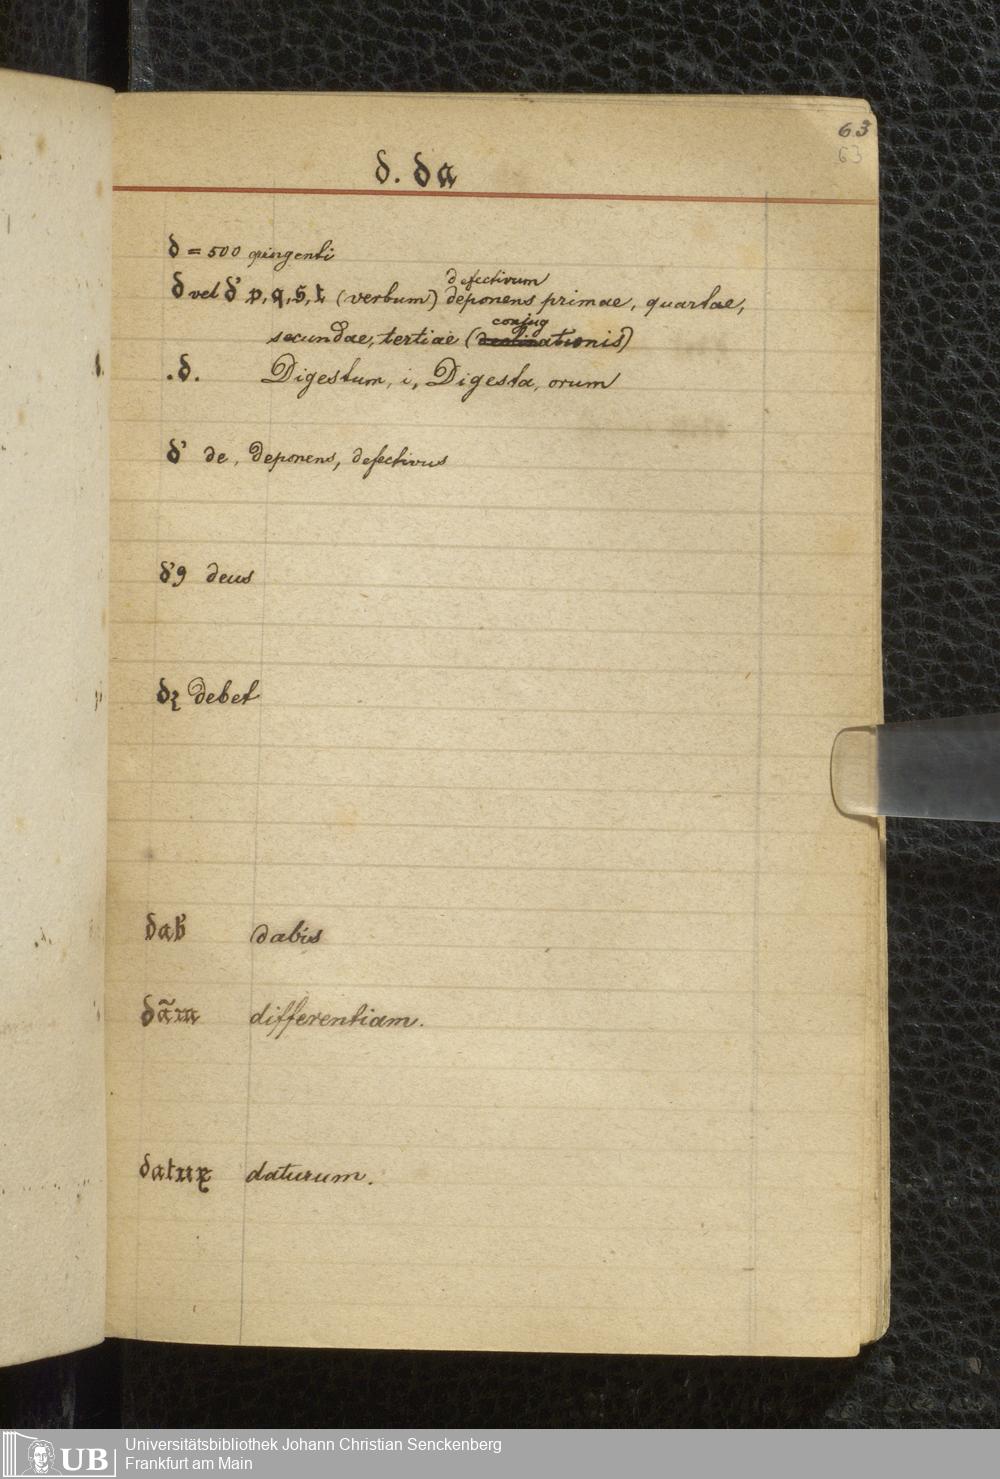 63
63
d. da
d = 500 qingenti
defectivum
d vel d' p, q, s, t (verbum) deponens primae, quartae,
conjug
secundae, tertiae (declinationis)
.d. Digestum, i, Digesta, orum
d' de, deponens, defectivus
d'9 deus
dꝫ debet
dab' dabis
dãm differentiam.
datuꝝ daturum.
UB
Universitätsbibliothek Johann Christian Senckenberg
Frankfurt am Main